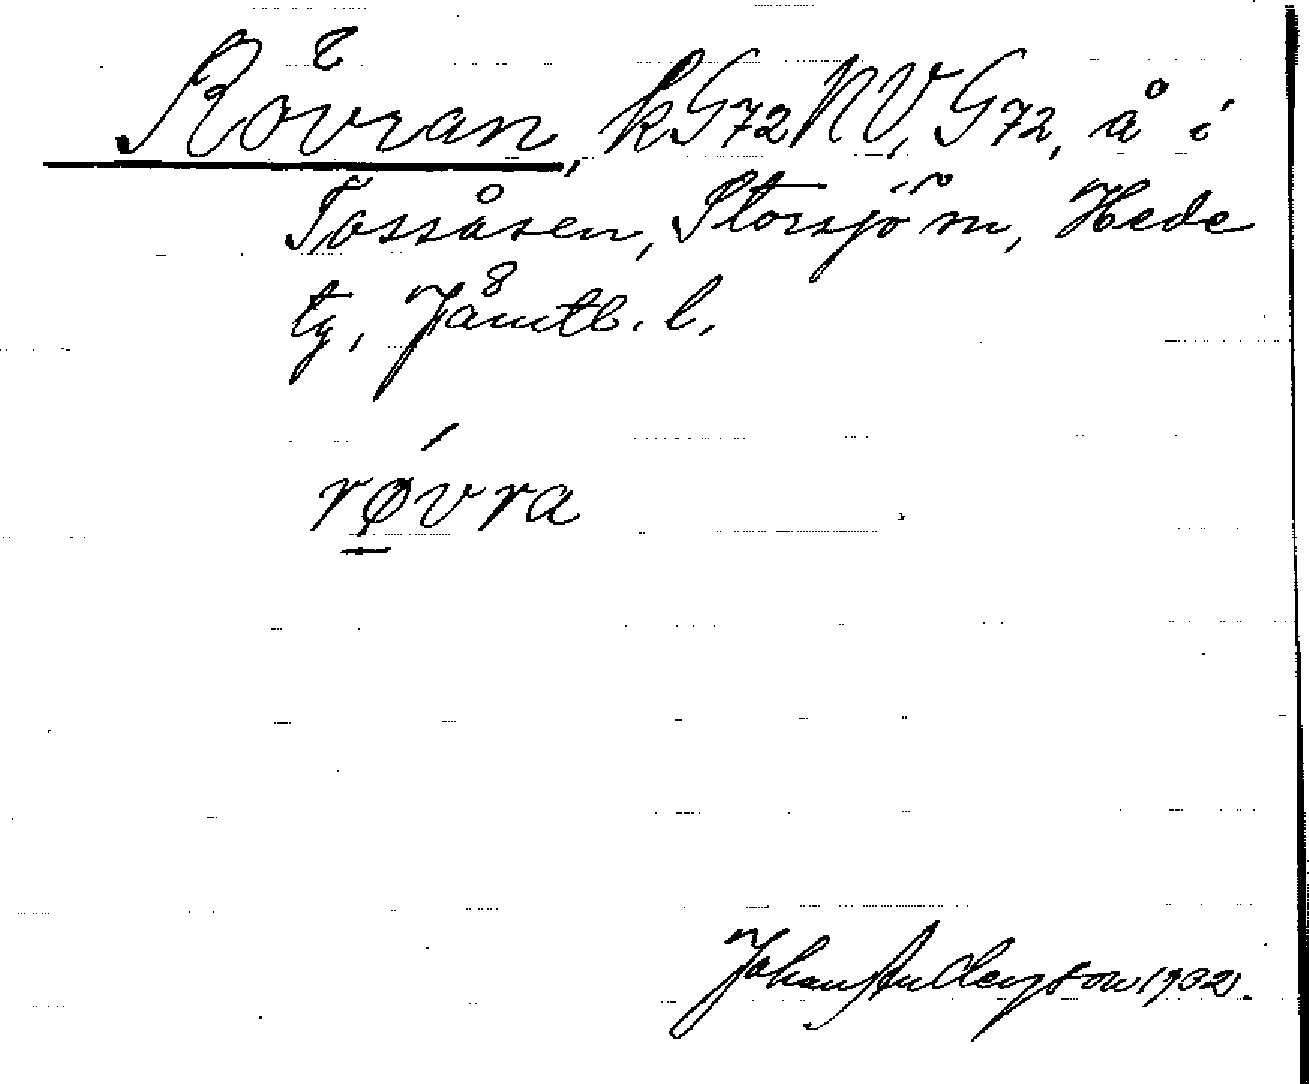 Rövran, kG72NV, G72, å i
Tossåsen, Storsjö sn, Hede
tg, Jämtl. l.
røvra
Johan Andersson 1932.